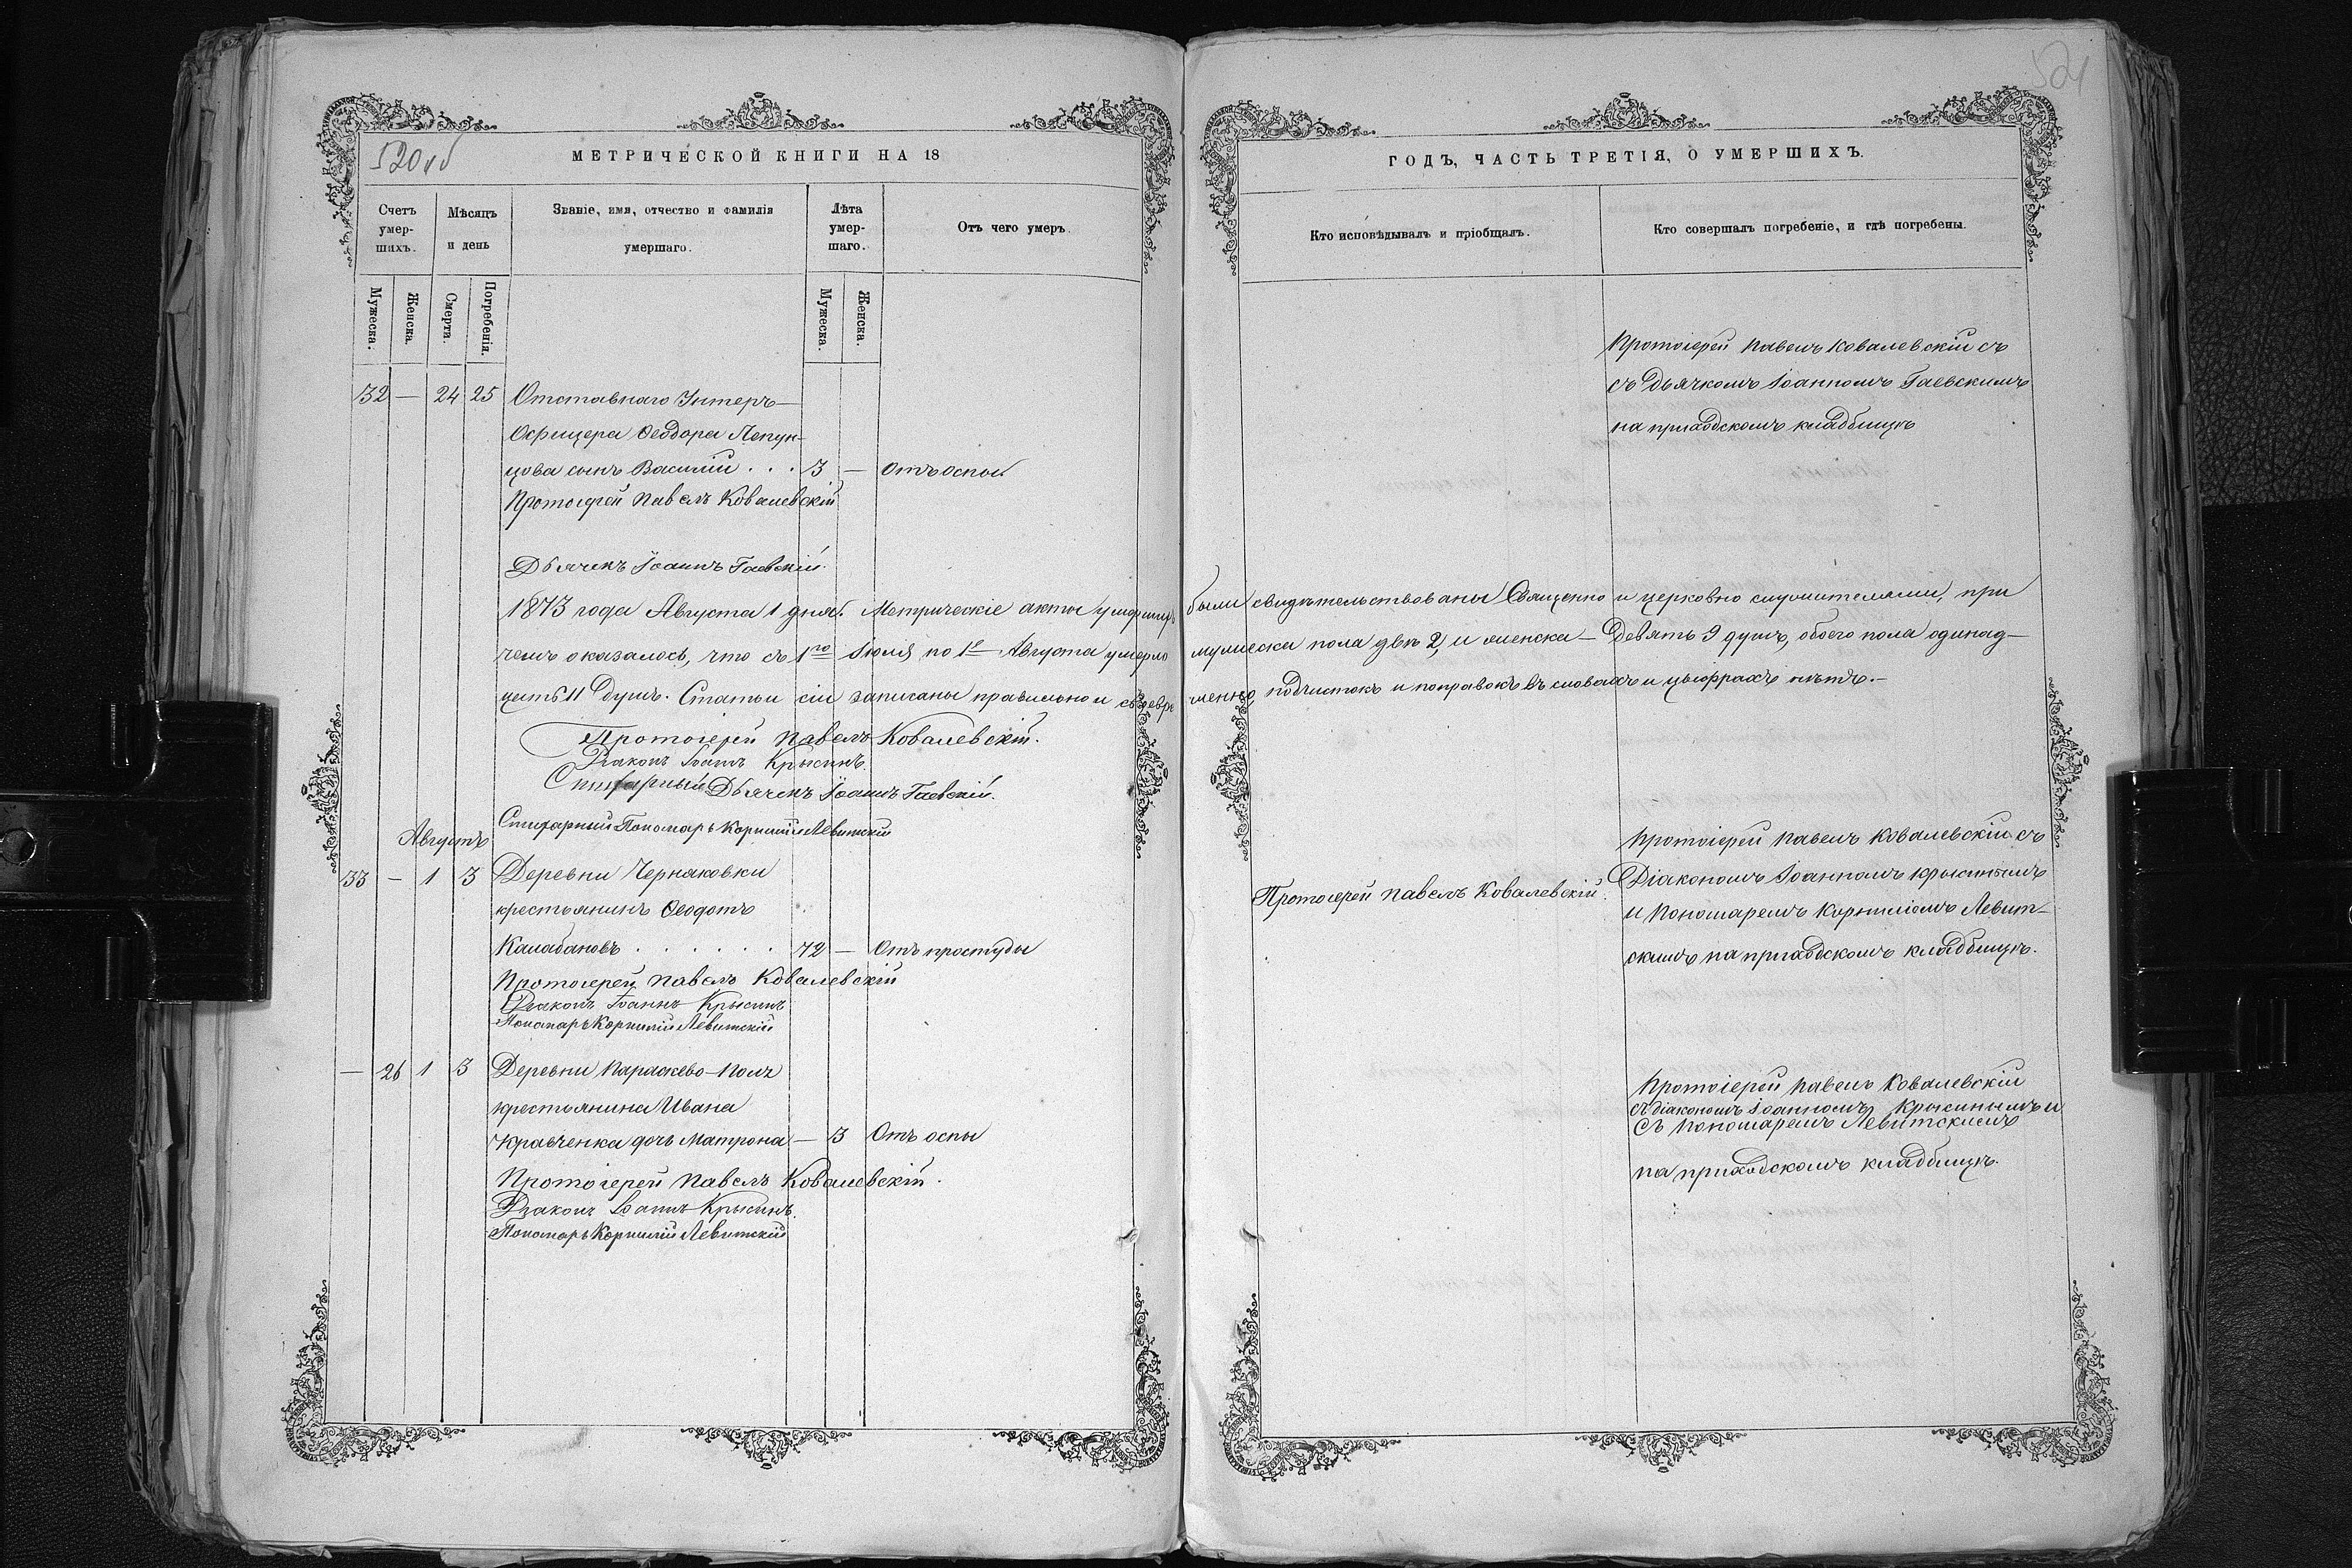 520об
МЕТРИЧЕСКОЙ КНИГИ НА 18
Счетъ умер-шихъ.
Мѣсяцъ и день
Званіе, имя, отчество и фамилія умершаго.
Лѣта умер-шаго.
Отъ чего умеръ.
Мужеска.
Женска.
Смерти.
Погребенія.
Мужеска.
Женска.
32 — 24 25 Отставнаго Унтеръ-
Офицера Ѳеодора Лепун-
цова сынъ Василій . . . 3 — Отъ оспы.
Протоіерей Павелъ Ковалевскій
Дьячекъ Іоаннъ Гаевскій.
1873 года Августа 1 дня. Метрическіе акты умерших
чемъ оказалось, что съ 1го Іюля по 1е Августа умерло
цать 11 душъ. Статьи сіи записаны правильно и своевре
Протоіерей Павелъ Ковалевскій.
Діаконъ Іоаннъ Крысинъ.
Стихарный Дьячекъ Іоаннъ Гаевскій.
Стихарный Пономарь Корнилій Левитскій
Августъ
33 — 1 3 Деревни Черняковки
крестьянинъ Ѳеодотъ
Калабановъ . . . . . . 72 — Отъ простуды
Протоіерей Павелъ Ковалевскій
Діаконъ Іоаннъ Крысинъ
Пономарь Корнилій Левитскій
— 26 1 3 Деревни Параскево-Поля
крестьянина Ивана
Кравченка дочь Матрона — 3 Отъ оспы
Протоіерей Павелъ Ковалевскій.
Діаконъ Іоаннъ Крысинъ.
Пономарь Корнилій Левитскій
521
ГОДЪ, ЧАСТЬ ТРЕТІЯ, О УМЕРШИХЪ.
Кто исповѣдывалъ и пріобщалъ.
Кто совершалъ погребеніе, и гдѣ погребены.
Протоіерей Павелъ Ковалевскій съ
съ Дьячкомъ Іоанномъ Гаевскимъ
на приходскомъ кладбищѣ
были свидѣтельствованы Священно и церковно служителями, при
мужеска пола двѣ 2, и женска — Девять 9 душъ, обоего пола одинад-
менно, подчистокъ и поправокъ въ словахъ и цыфрахъ нѣтъ.—
Протоіерей Павелъ Ковалевскій съ
Діакономъ Іоанномъ Крысинымъ
Протоіерей Павелъ Ковалевскій.
и Пономаремъ Корниліомъ Левит-
скимъ на приходскомъ кладбищѣ.
Протоіерей Павелъ Ковалевскій
съ Діакономъ Іоанномъ Крысинымъ и
съ Пономаремъ Левитскимъ
на приходскомъ кладбищѣ.